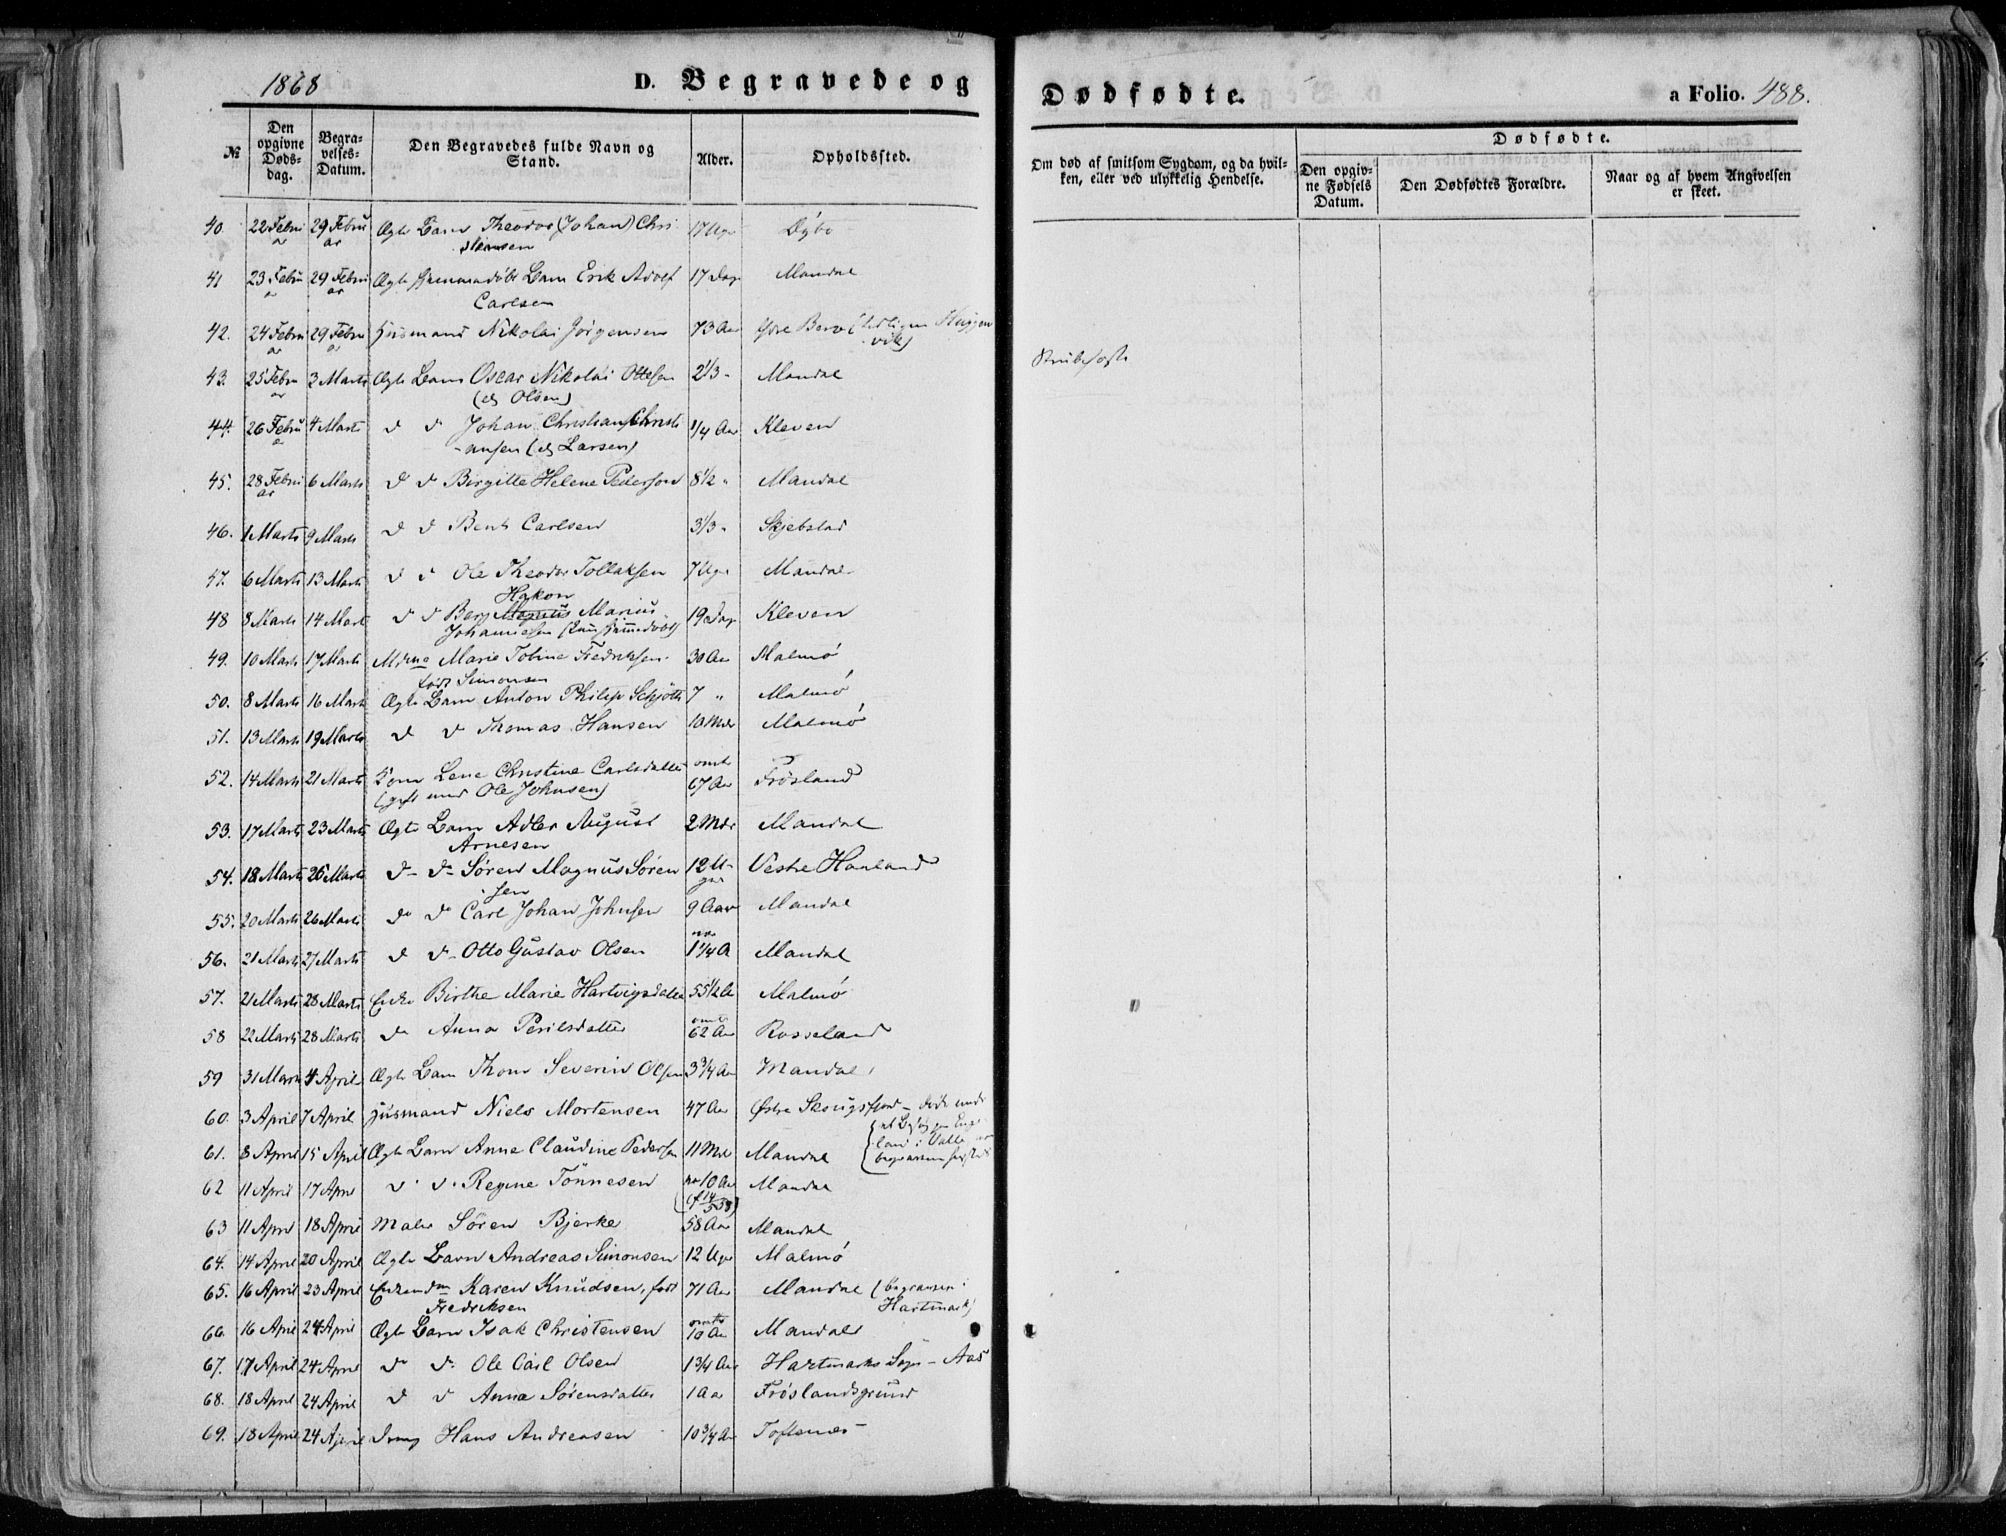 1868 D. Begravede og Dødfødte. a Folio. 488.
№ Den opgivne Døds-dag. Begra-velses-Datum. Den Begravedes fulde Navn og Stand. Alder. Opholdssted. Om død af smitsom Sygdom, og da hvil-ken, eller ved ulykkelig Hendelse. Dødfødte. Den opgiv-ne Fødsels Datum. Den Dødfødtes Forældre. Naar og af hvem Angivelsen er skeet.
40. 22 Februar 29 Februar Ægte Barn Theodor (Johan) Chri-stiansen 17 Uger Dybo
41 23 Februar 29 Februar Ægte hjemmedøbt Barn Erik Adolf Carlsen 17 Dage Mandal
42. 24 Februar 29 Februar Husmand Nikolai Jørgensen 73 Aar
43. 25 Februar 3 Marts Ægte Barn Oscar Nikolai Ottesen (el Olsen) 2 1/3 " Mandal Strubehoste
44. 26 Februar 4 Marts d d Johan Christian Christi-ansen (el Larsen) 3/4 Aar Kleven
45. 28 Februar 6 Marts d d Birgitte Helene Pedersen 8 1/2 " Mandal
46. 1 Marts 9 Marts d d Bent Carlsen 3 1/3 " Skjebstad
47. 6 Marts 13 Marts d d Ole Theodor Tollaksen 7 Uger Mandal
48 8 Marts 14 Marts d d Berg Magnus Hakon Marius Johannesen (kun hjemmedøbt) 19 Dage Kleven
49. 10 Marts 17 Marts Mdme Marie Tobine Fredriksen født Simonsen 30 Aar Malmø
50. 8 Marts 16 Marts Ægte Barn Anton Philip Schjøtt 7 " Malmø
51. 13 Marts 19 Marts d d Thomas Hansen 10 Mdr Malmø
52. 14 Marts 21 Marts Kone Lene Christine Carlsdatter (gift med Ole Johnsen) omt 67 Aar Frøsland
53. 17 Marts 23 Marts Ægte Barn Adler August Arnesen 2 Mdr Mandal
54. 18 Marts 26 Marts d d Søren Magnus Søren-sen 12 U-ger Vestre Haaland
55. 20 Marts 26 Marts do do Carl Johan Johnsen 9 Aar Mandal
56. 21 Marts 27 Marts d d Otto Gustav Olsen 1 1/4 A Mandal
57. 21 Marts 28 Marts Enke Birthe Marie Hartvigsdatter 55 1/2 A Malmø
58 22 Marts 28 Marts do Anna omt 62 Aar Rosseland
59 31 Marts 4 April Ægte Barn Thom Severin Olsen 3 3/4 Aar Mandal
60. 3 April 7 April Husmand Niels Mortensen 47 Aar Østre Skougsfjord
61. 8 April 15 April Ægte Barn Anne Claudine Pedersen 11 Mdr Mandal
62 11 April 17 April d d Regine Tønnesen 10 Aar Mandal
63 11 April 18 April Maler Søren Bjerke 58 Aar Mandal
64. 14 April 20 April Ægte Barn Andreas Simonsen 12 Uger Malmø
65. 16 April 23 April Enkemdm Karen Knudsen, født Fredriksen 71 Aar Mandal (begraven i Hartmark)
66. 16 April 24 April Ægte Barn Isak Christensen omtr 10 Aar Mandal
67. 17 April 24 April d d Ole Carl Olsen 1 3/4 Aar Hartmarks Sogn - Aas
68. 18 April 24 April d d Anna Sørensdatter 1 Aar Frøslandsgrund
69. 18 April 24 April Dreng Hans Andreasen 10 3/4 Aar Toftenes